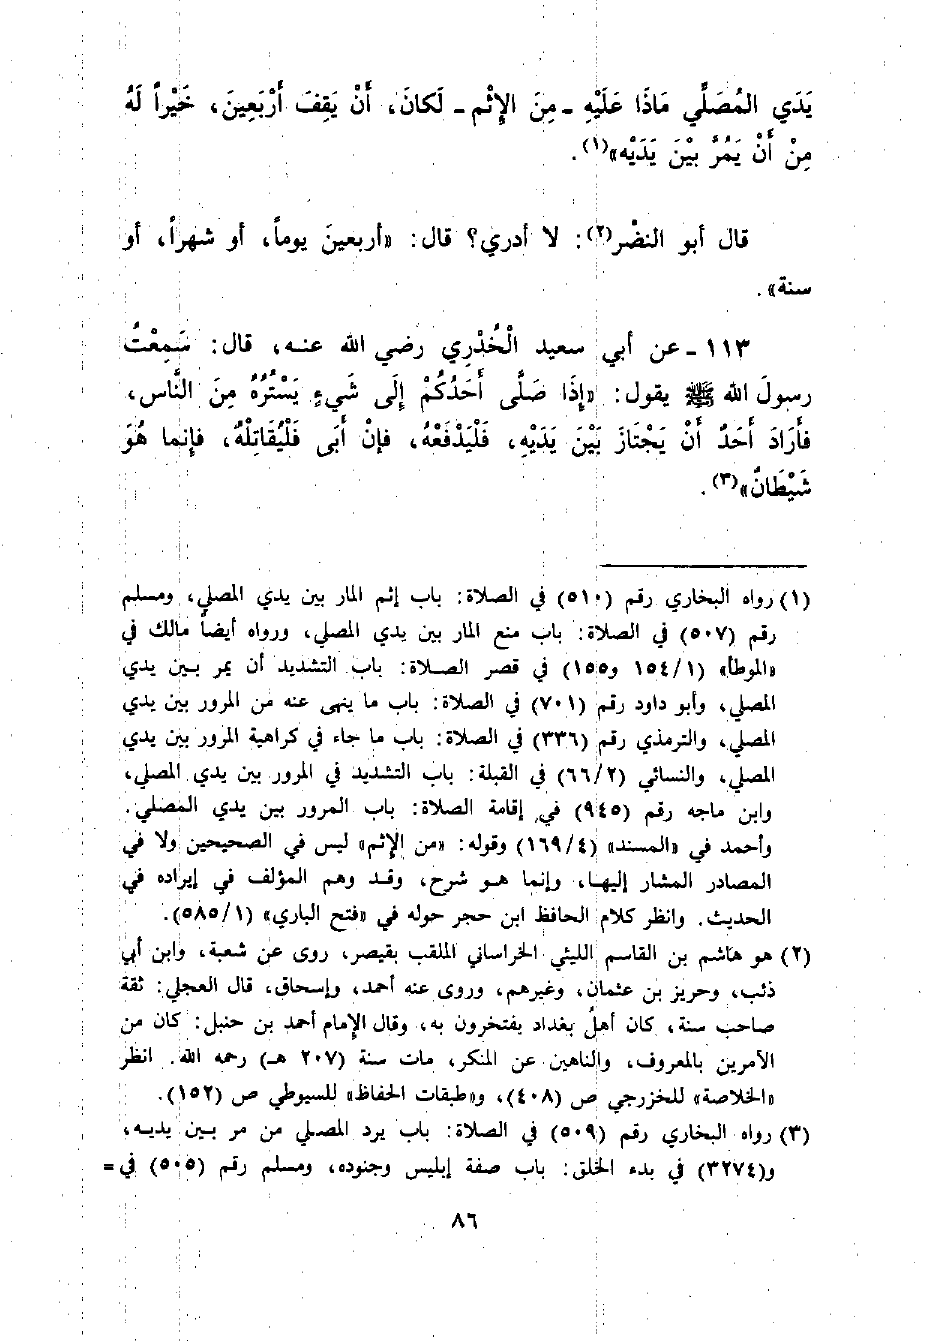 يَدَي المُصَلِّي مَاذَا عَلَيْهِ ـ مِنَ الإِثْمِ ـ لَكانَ، أَنْ يَقِفَ أَرْبَعِينَ، خَيْراً لَهُ
مِنْ أَنْ يَمُرَّ بَيْنَ يَدَيْه»(١).
قال أبو النضْر(٢): لا أدري؟ قال: «أربعينَ يوماً، أو شهراً، أو
سنة».
١١٣ ـ عن أبي سعيد الْخُدْري رضي الله عنه، قال: سَمِعْتُ
رسولَ الله ﷺ يقول: «إِذَا صَلَّى أَحَدُكُمْ إِلَى شَيءٍ يَسْتُرُهُ مِنَ النَّاس،
فأَرَادَ أَحَدٌ أَنْ يَجْتَازَ بَيْنَ يَدَيْهِ، فَلْيَدْفَعْهُ، فإنْ أَبَى فَلْيُقَاتِلْهُ، فإِنما هُوَ
شَيْطَانٌ»(٣).
(١) رواه البخاري رقم (٥١٠) في الصلاة: باب إثم المار بين يدي المصلي، ومسلم
رقم (٥٠٧) في الصلاة: باب منع المار بين يدي المصلي، ورواه أيضاً مالك في
«الموطأ» (١/ ١٥٤ و١٥٥) في قصر الصلاة: باب التشديد أن يمر بين يدي
المصلي، وأبو داود رقم (٧٠١) في الصلاة: باب ما ينهى عنه من المرور بين يدي
المصلي، والترمذي رقم (٣٣٦) في الصلاة: باب ما جاء في كراهية المرور بين يدي
المصلي، والنسائي (٢/ ٦٦) في القبلة: باب التشديد في المرور بين يدي المصلي،
وابن ماجه رقم (٩٤٥) في إقامة الصلاة: باب المرور بين يدي المصلي.
وأحمد في «المسند» (٤/ ١٦٩) وقوله: «من الإثم» ليس في الصحيحين ولا في
المصادر المشار إليها، وإنما هو شرح، وقد وهم المؤلف في إيراده في
الحديث. وانظر كلام الحافظ ابن حجر حوله في «فتح الباري» (١/ ٥٨٥).
(٢) هو هاشم بن القاسم الليثي الخراساني الملقب بقيصر، روى عن شعبة، وابن أبي
ذئب، وحريز بن عثمان، وغيرهم، وروى عنه أحمد، وإسحاق، قال العجلي: ثقة
صاحب سنة، كان أهلُ بغداد يفتخرون به، وقال الإمام أحمد بن حنبل: كان من
الآمرين بالمعروف، والناهين عن المنكر، مات سنة (٢٠٧ هـ) رحمه الله. انظر
«الخلاصة» للخزرجي ص (٤٠٨)، و«طبقات الحفاظ» للسيوطي ص (١٥٢).
(٣) رواه البخاري رقم (٥٠٩) في الصلاة: باب يرد المصلي من مر بين يديه،
و(٣٢٧٤) في بدء الخلق: باب صفة إبليس وجنوده، ومسلم رقم (٥٠٥) في =
٨٦